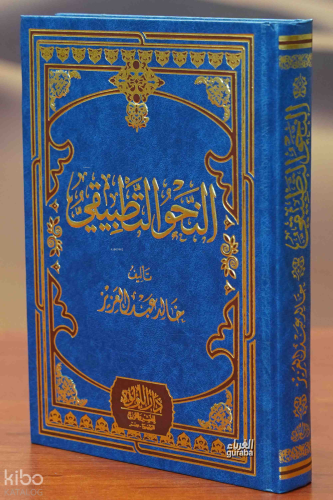 النحو التطبيقي
تأليف
خالد عبد العزيز
دار اللؤلؤة
النحو التطبيقي
خالد عبد العزيز
الغرباء
guraba
kibo